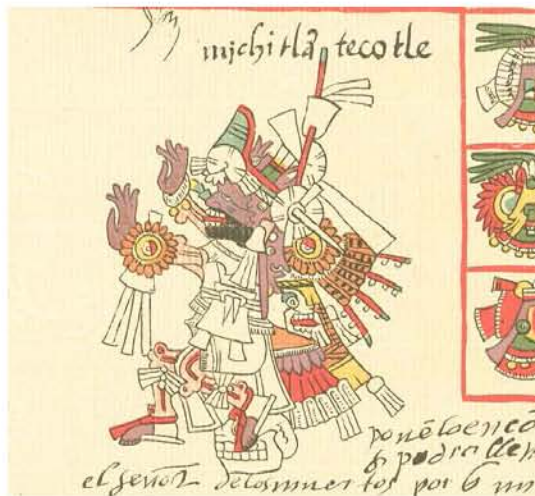 mjchitlã tecotle
ponẽloencõ
podralle
el señor delos muertos por